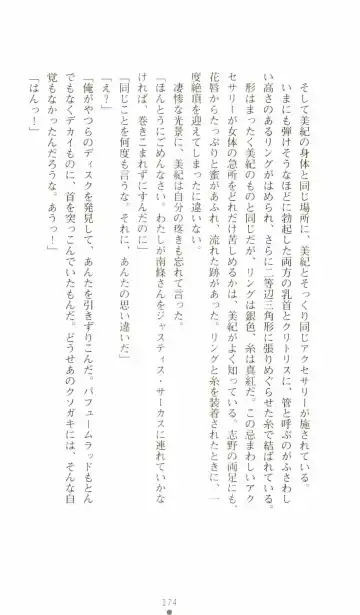 そして美紀の身体と同じ場所に、美紀とそっくり同じアクセサリーが施されている。
いまにも弾けそうなほどに勃起した両方の乳首とクリトリスに、管と呼ぶのがふさわし
い高さのあるリングがはめられ、さらに二等辺三角形に張りめぐらせた糸で結ばれている。
形はまったく美紀のものと同じだが、リングは銀色、糸は真紅だ。この忌まわしいアク
セサリーが女体の急所をどれだけ苦しめるかは、美紀がよく知っている。志野の両足にも、
花唇からたっぷりと蜜があふれ、流れた跡があった。リングと糸を装着されたときに、一
度絶頂を迎えてしまったに違いない。
凄惨な光景に、美紀は自分の疼きも忘れて言った。
「ほんとうにごめんなさい。わたしが南條さんをジャスティス・サーカスに連れていかな
ければ、巻きこまれずにすんだのに」
「同じことを何度も言うな。それに、あんたの思い違いだ」
「え？」
「俺がやつらのディスクを発見して、あんたを引きずりこんだ。パフュームラッドもとん
でもなくデカイものに、首を突っこんでいたもんだ。どうせあのクソガキには、そんな自
覚もなかったんだろうな。あうっ！」
「ぱんっ！」
174